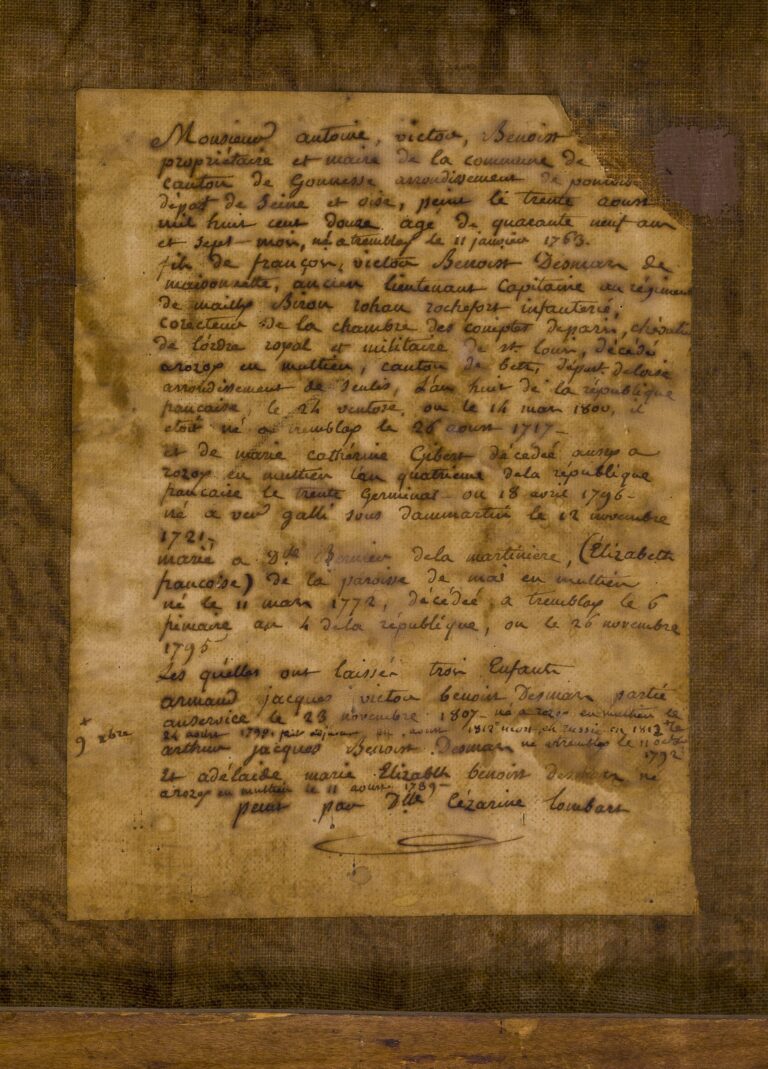 Monsieur antoine, victor, Benoist
propriétaire et maire de la commune de
canton de Gonnesse arrondissement de pontoise
dépat de Seine et oise, peint le trente aoust
mil huit cent douze agé de quarante neuf ans
et sept mois, né a tremblay le 11 janvier 1763.
fils de françois, victor Benoist Desmars de
maisonnette, ancien lieutenant Capitaine au régiment
de mailly Biron rohan rochefort infanterie,
corecteur de la chambre des comptes de paris, chévalier
de l'ordre royal et militaire de st louis, décédé
arozoy en multien, canton de betz, dépat de loise
arrondissement de Senlis, l'an huit de la république
francaise, le 24 ventose, ou le 14 mars 1800, il
étoit né a tremblay le 26 aoust 1717-
et de marie cathérine Gibert décédée aussy a
rozoy en multien l'an quatrieme de la république
francaise le trente Germinal- ou 18 avril 1796-
né a ver galli sous dammartin le 12 novembre
1721-
marié a Dlle de la martiniere, (Elizabeth
francoise) de la paroisse de mai en multien
né le 11 mars 1772, décédée, a tremblay le 6
frimaire an 4 de la république, ou le 26 novembre
1795
Les quelles ont laissée trois Enfants
armand jacques victor benoist Desmars partie
auservice le 23 novembre 1807- né a rozoy en multien le
24 aoust 1788. aoust 1812 mort en russie en 1812 le
+ 9 xbre
arthur jacques Benoist Desmars né a tremblay le 11 octb
1792
Et adélaide marie Elizabeth benoist desmars né
a rozoy en multien le 11 aoust 1789-
peint par Dlle Cézarine Lombart